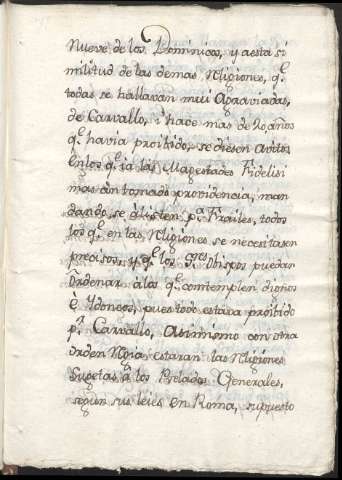 Nueve de los Dominicos, y a esta si
militud de las demas Religiones, q.^e
todas se hallavan mui Agraviadas,
de Carvallo, i hace mas de 20 años
q.^e havia proibido, se diesen avitos
En los q.^e ia las Magestades Fidelisi
mas an tomado providencia, man
dando, se alisten p.^a Frailes, todos
los q.^e en las Religiones se necesitasen
precisos, y q.^e los S.^res Obispos puedan
Ordenar a los q.^e contemplen dignos
è Ydoneos, pues todo estava proibido
p.^r Carvallo, Asimismo con otra
orden Regia estaran las Religiones
Sugetas a los Prelados Generales,
segun sus leies En Roma, supuesto